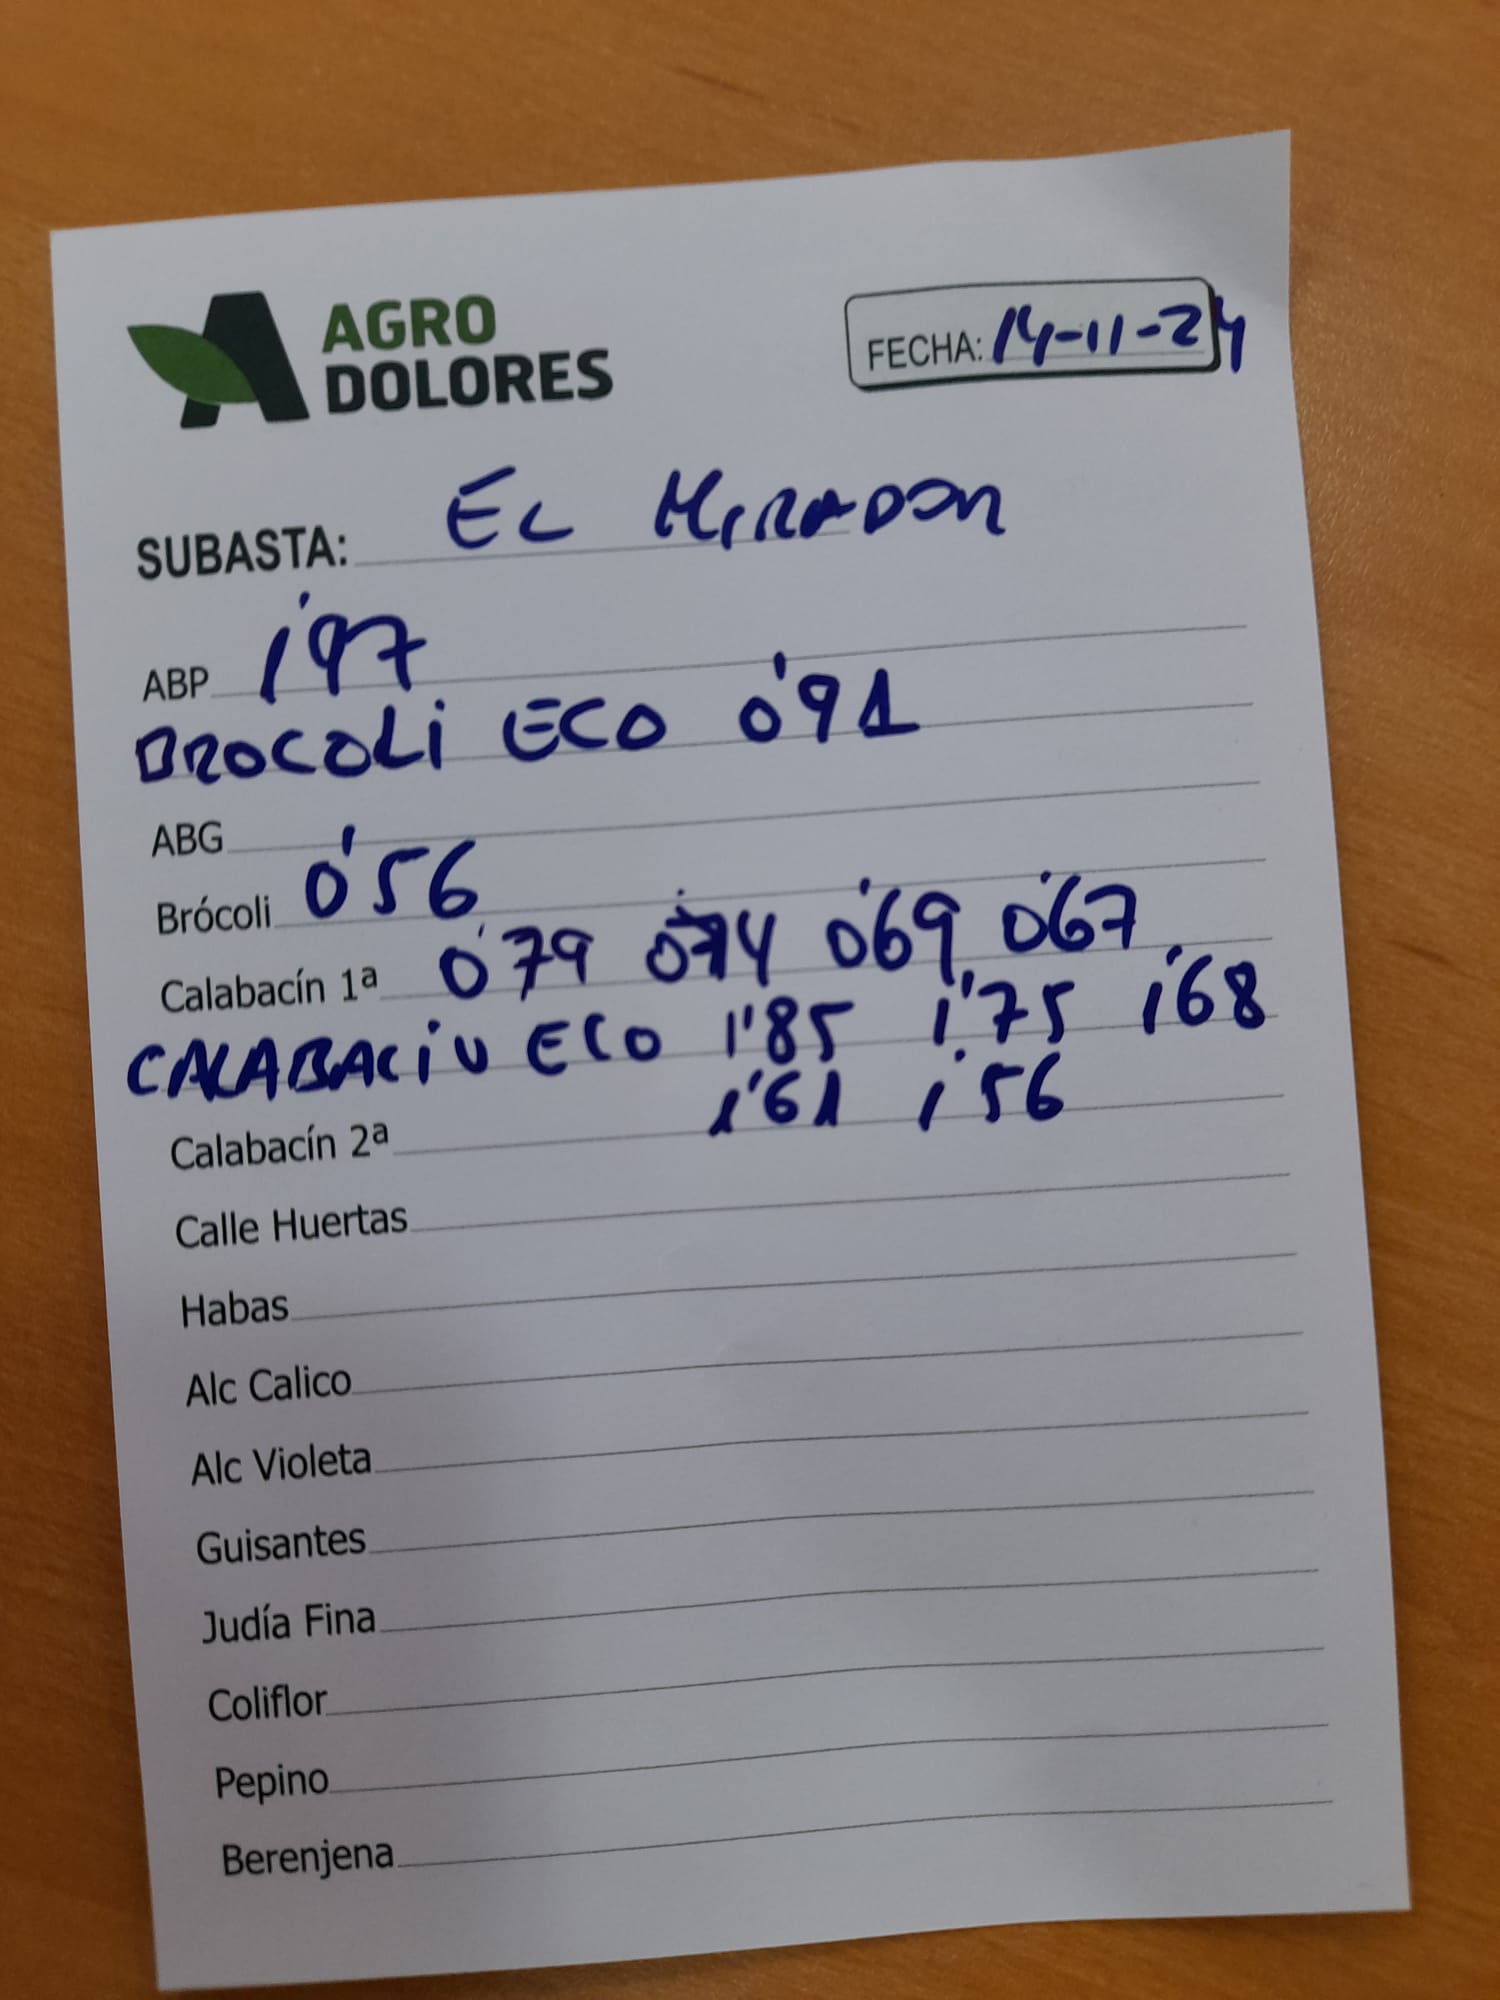 AGRO
DOLORES
FECHA: 14-11-24
SUBASTA: EL MIRADOR
ABP 1'97
BROCOLI ECO 0'91
ABG
Brócoli 0'56
Calabacín 1ª 0'79 0'74 0'69 0'67
CALABACIN ECO 1'85 1'75 1'68
1'61 1'56
Calabacín 2ª
Calle Huertas
Habas
Alc Calico
Alc Violeta
Guisantes
Judía Fina
Coliflor
Pepino
Berenjena